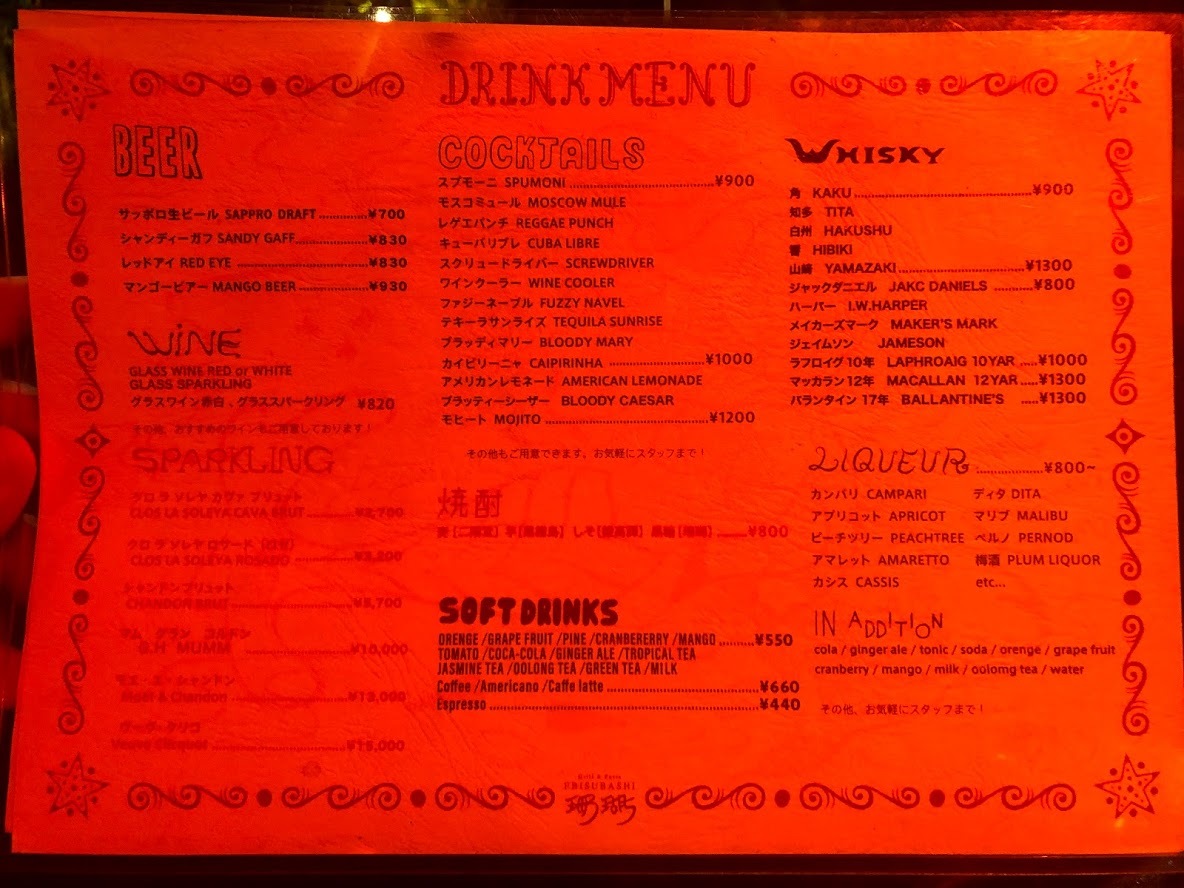 DRINK MENU
BEER
サッポロ生ビール SAPPRO DRAFT ..............¥700
シャンディーガフ SANDY GAFF..................¥830
レッドアイ RED EYE ................................¥830
マンゴービアー MANGO BEER..................¥930
WINE
GLASS WINE RED or WHITE
GLASS SPARKLING
グラスワイン赤白、グラススパークリング ¥820
その他、おすすめのワインもご用意しております！
SPARKLING
クロ ラ ソレヤ カヴァ ブリュット
CLOS LA SOLEYA CAVA BRUT ............¥2,700
クロ ラ ソレヤ ロサード
CLOS LA SOLEYA ROSADO ...............¥3,200
シャンドンブリュット
CHANDON BRUT ..............................¥5,700
マム グラン コルドン
G.H MUMM ......................¥10,000
モエ・エ・シャンドン
Moët & Chandon ..............................¥13,000
ヴーヴ・クリコ
Veuve Clicquot ..............................¥15,000
COCKTAILS
スプモーニ SPUMONI ....................................¥900
モスコミュール MOSCOW MULE
レゲエパンチ REGGAE PUNCH
キューバリブレ CUBA LIBRE
スクリュードライバー SCREWDRIVER
ワインクーラー WINE COOLER
ファジーネーブル FUZZY NAVEL
テキーラサンライズ TEQUILA SUNRISE
ブラッディマリー BLOODY MARY
カイピリーニャ CAIPIRINHA ........................¥1000
アメリカンレモネード AMERICAN LEMONADE
ブラッティーシーザー BLOODY CAESAR
モヒート MOJITO ........................................¥1200
その他もご用意できます、お気軽にスタッフまで！
焼酎
麦 [二階堂] 芋 しそ 黒糖 .........¥800
SOFT DRINKS
ORENGE /GRAPE FRUIT /PINE /CRANBERERRY /MANGO .........¥550
TOMATO /COCA-COLA /GINGER ALE /TROPICAL TEA
JASMINE TEA /OOLONG TEA /GREEN TEA /MILK
Coffee /Americano /Caffe latte ......................................¥660
Espresso ....................................................................¥440
WHISKY
角 KAKU .............................................¥900
知多 TITA
白州 HAKUSHU
響 HIBIKI
山崎 YAMAZAKI ................................¥1300
ジャックダニエル JAKC DANIELS ...........¥800
ハーパー I.W.HARPER
メイカーズマーク MAKER'S MARK
ジェイムソン JAMESON
ラフロイグ 10年 LAPHROAIG 10YAR ....¥1000
マッカラン 12年 MACALLAN 12YAR .....¥1300
バランタイン 17年 BALLANTINE'S .....¥1300
LIQUEUR ....................¥800~
カンパリ CAMPARI ディタ DITA
アプリコット APRICOT マリブ MALIBU
ピーチツリー PEACHTREE ペルノ PERNOD
アマレット AMARETTO 梅酒 PLUM LIQUOR
カシス CASSIS etc...
IN ADDITION
cola / ginger ale / tonic / soda / orenge / grape fruit
cranberry / mango / milk / oolomg tea / water
その他、お気軽にスタッフまで！
EBISUBASHI
珊瑚